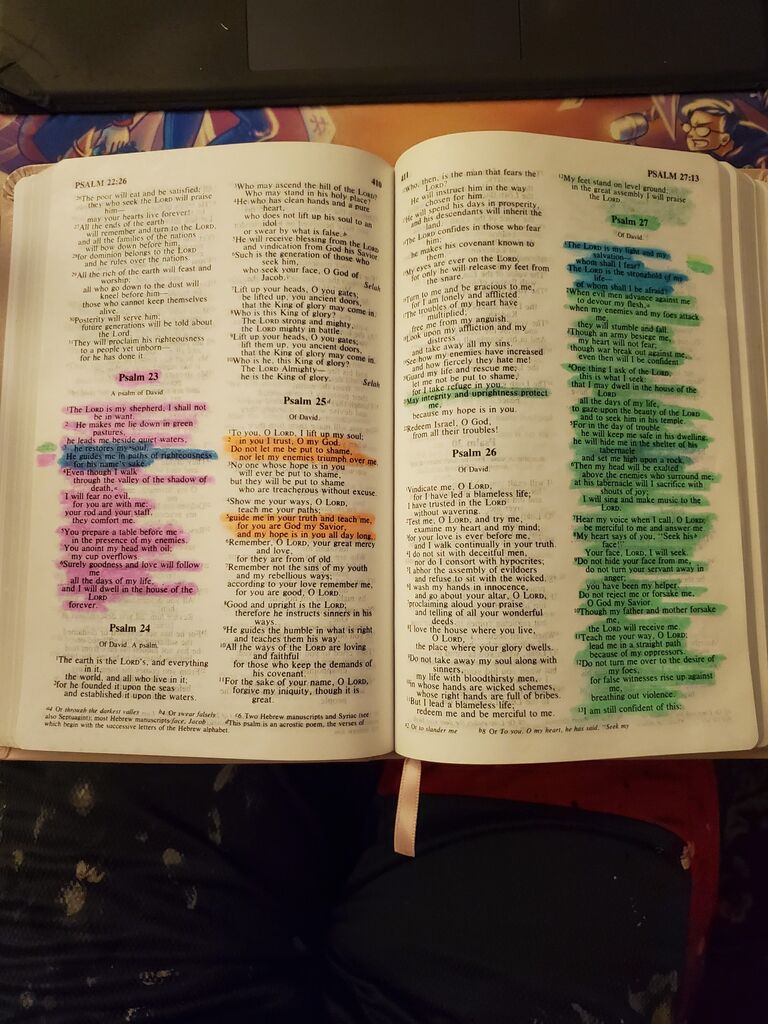 PSALM 22:26
410
26The poor will eat and be satisfied;
they who seek the LORD will praise
him—
may your hearts live forever!
27All the ends of the earth
will remember and turn to the LORD,
and all the families of the nations
will bow down before him,
28for dominion belongs to the LORD
and he rules over the nations.
29All the rich of the earth will feast and
worship;
all who go down to the dust will
kneel before him—
those who cannot keep themselves
alive.
30Posterity will serve him;
future generations will be told about
the Lord.
31They will proclaim his righteousness
to a people yet unborn—
for he has done it.
Psalm 23
A psalm of David.
1The LORD is my shepherd, I shall not
be in want.
2 He makes me lie down in green
pastures,
he leads me beside quiet waters,
3 he restores my soul.
He guides me in paths of righteousness
for his name's sake.
4Even though I walk
through the valley of the shadow of
death,a
I will fear no evil,
for you are with me;
your rod and your staff,
they comfort me.
5You prepare a table before me
in the presence of my enemies.
You anoint my head with oil;
my cup overflows.
6Surely goodness and love will follow
me
all the days of my life,
and I will dwell in the house of the
LORD
forever.
Psalm 24
Of David. A psalm.
1The earth is the LORD's, and everything
in it,
the world, and all who live in it;
2for he founded it upon the seas
and established it upon the waters.
3Who may ascend the hill of the LORD?
Who may stand in his holy place?
4He who has clean hands and a pure
heart,
who does not lift up his soul to an
idol
or swear by what is false.b
5He will receive blessing from the LORD
and vindication from God his Savior.
6Such is the generation of those who
seek him,
who seek your face, O God of
Jacob.c
Selah
7Lift up your heads, O you gates;
be lifted up, you ancient doors,
that the King of glory may come in.
8Who is this King of glory?
The LORD strong and mighty,
the LORD mighty in battle.
9Lift up your heads, O you gates;
lift them up, you ancient doors,
that the King of glory may come in.
10Who is he, this King of glory?
The LORD Almighty—
he is the King of glory.
Selah
Psalm 25d
Of David.
1To you, O LORD, I lift up my soul;
2 in you I trust, O my God.
Do not let me be put to shame,
nor let my enemies triumph over me.
3No one whose hope is in you
will ever be put to shame,
but they will be put to shame
who are treacherous without excuse.
4Show me your ways, O LORD,
teach me your paths;
5guide me in your truth and teach me,
for you are God my Savior,
and my hope is in you all day long.
6Remember, O LORD, your great mercy
and love,
for they are from of old.
7Remember not the sins of my youth
and my rebellious ways;
according to your love remember me,
for you are good, O LORD.
8Good and upright is the LORD;
therefore he instructs sinners in his
ways.
9He guides the humble in what is right
and teaches them his way.
10All the ways of the LORD are loving
and faithful
for those who keep the demands of
his covenant.
11For the sake of your name, O LORD,
forgive my iniquity, though it is
great.
a4 Or through the darkest valley b4 Or swear falsely c6 Two Hebrew manuscripts and Syriac (see
also Septuagint); most Hebrew manuscripts face, Jacob dThis psalm is an acrostic poem, the verses of
which begin with the successive letters of the Hebrew alphabet.
411
PSALM 27:13
12Who, then, is the man that fears the
LORD?
He will instruct him in the way
chosen for him.
13He will spend his days in prosperity,
and his descendants will inherit the
land.
14The LORD confides in those who fear
him;
he makes his covenant known to
them.
15My eyes are ever on the LORD,
for only he will release my feet from
the snare.
16Turn to me and be gracious to me,
for I am lonely and afflicted.
17The troubles of my heart have
multiplied;
free me from my anguish.
18Look upon my affliction and my
distress
and take away all my sins.
19See how my enemies have increased
and how fiercely they hate me!
20Guard my life and rescue me;
let me not be put to shame,
for I take refuge in you.
21May integrity and uprightness protect
me,
because my hope is in you.
22Redeem Israel, O God,
from all their troubles!
Psalm 26
Of David.
1Vindicate me, O LORD,
for I have led a blameless life;
I have trusted in the LORD
without wavering.
2Test me, O LORD, and try me,
examine my heart and my mind;
3for your love is ever before me,
and I walk continually in your truth.
4I do not sit with deceitful men,
nor do I consort with hypocrites;
5I abhor the assembly of evildoers
and refuse to sit with the wicked.
6I wash my hands in innocence,
and go about your altar, O LORD,
7proclaiming aloud your praise
and telling of all your wonderful
deeds.
8I love the house where you live,
O LORD,
the place where your glory dwells.
9Do not take away my soul along with
sinners,
my life with bloodthirsty men,
10in whose hands are wicked schemes,
whose right hands are full of bribes.
11But I lead a blameless life;
redeem me and be merciful to me.
12My feet stand on level ground;
in the great assembly I will praise
the LORD.
Psalm 27
Of David.
1The LORD is my light and my
salvation—
whom shall I fear?
The LORD is the stronghold of my
life—
of whom shall I be afraid?
2When evil men advance against me
to devour my flesh,a
when my enemies and my foes attack
me,
they will stumble and fall.
3Though an army besiege me,
my heart will not fear;
though war break out against me,
even then will I be confident.
4One thing I ask of the LORD,
this is what I seek:
that I may dwell in the house of the
LORD
all the days of my life,
to gaze upon the beauty of the LORD
and to seek him in his temple.
5For in the day of trouble
he will keep me safe in his dwelling;
he will hide me in the shelter of his
tabernacle
and set me high upon a rock.
6Then my head will be exalted
above the enemies who surround me;
at his tabernacle will I sacrifice with
shouts of joy;
I will sing and make music to the
LORD.
7Hear my voice when I call, O LORD;
be merciful to me and answer me.
8My heart says of you, "Seek hisb
face!"
Your face, LORD, I will seek.
9Do not hide your face from me,
do not turn your servant away in
anger;
you have been my helper.
Do not reject me or forsake me,
O God my Savior.
10Though my father and mother forsake
me,
the LORD will receive me.
11Teach me your way, O LORD;
lead me in a straight path
because of my oppressors.
12Do not turn me over to the desire of
my foes,
for false witnesses rise up against
me,
breathing out violence.
13I am still confident of this:
a2 Or to slander me b8 Or To you, O my heart, he has said, "Seek my